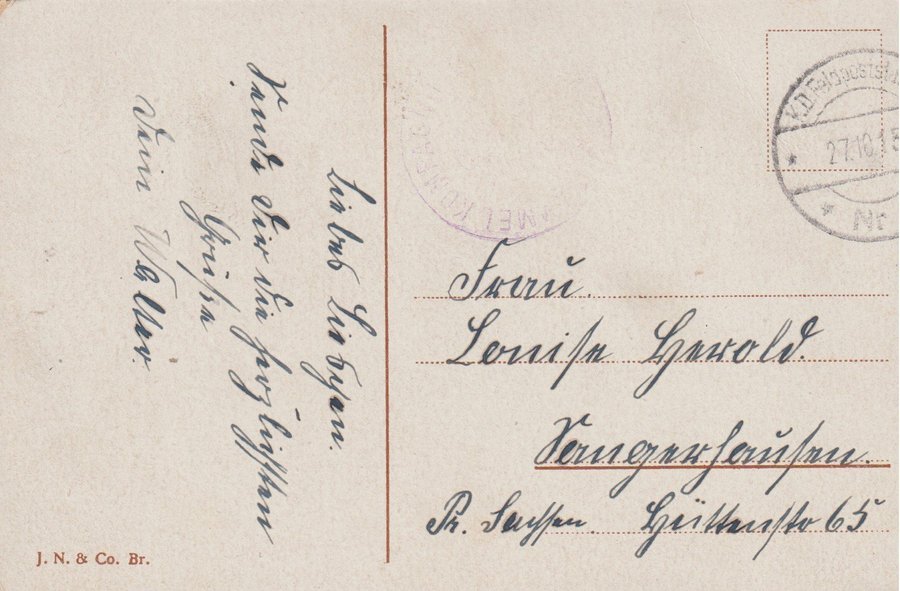 Liebes Lieschen.
Sende Dir die herzlichsten
Grüße
Dein Walter.
K.D. Feldpost
27.10.15
Nr
Frau.
Louise Herold.
Sangerhausen.
Pr. Sachsen. Hüttenstr 65
J. N. & Co. Br.